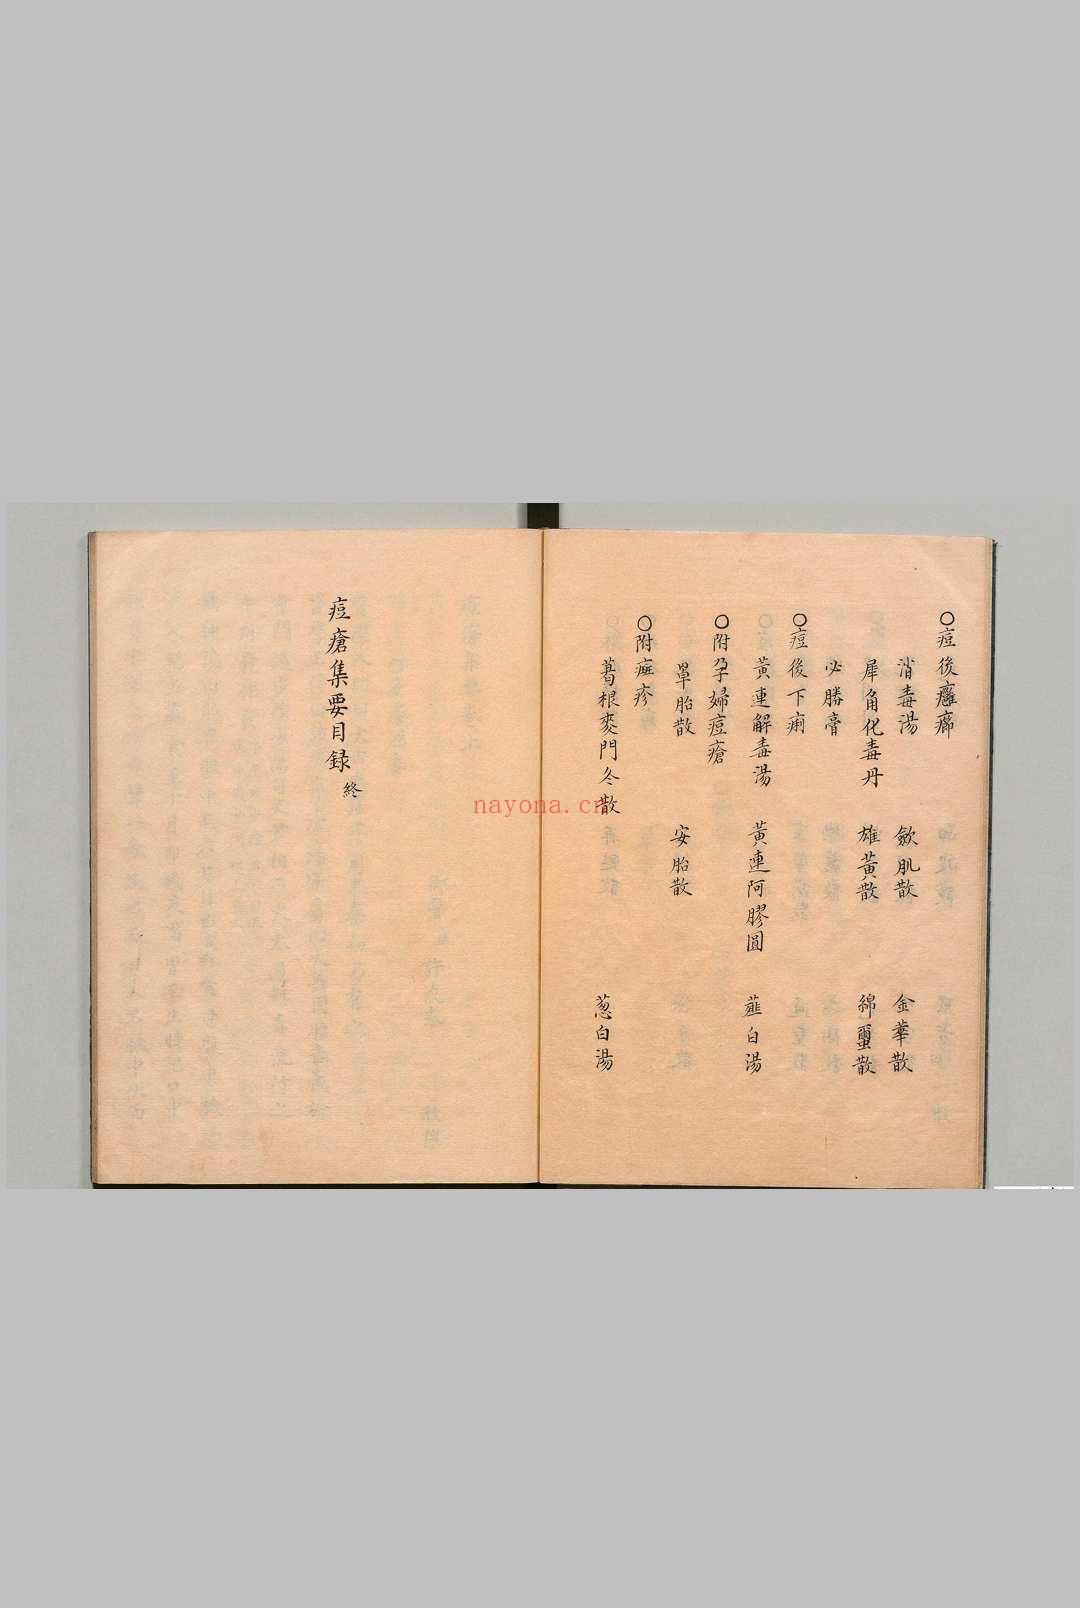 ○痘後癰癤
消毒湯 斂肌散 金華散
犀角化毒丹 雄黃散 綿璽散
必勝膏
○痘後下痢
黃連解毒湯 黃連阿膠圓 薤白湯
○附孕婦痘瘡
罩胎散 安胎散
○附癍疹
葛根麥門冬散 葱白湯
痘瘡集要目録 終
nayona.cn